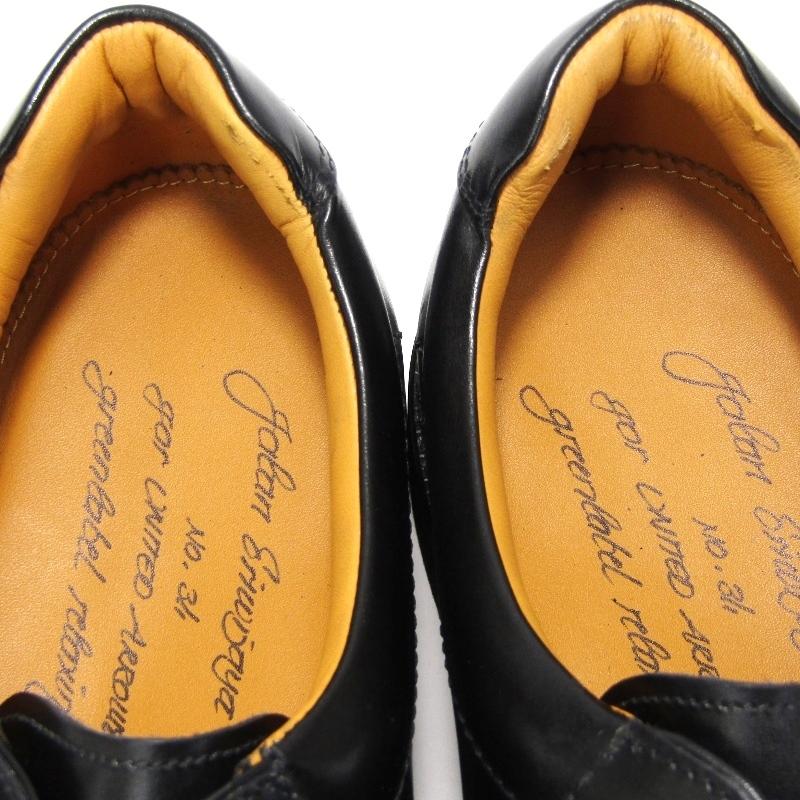 Jalan Sriwijaya
NO. 31
for UNITED ARROWS
green label relaxing
Jalan Sriw
NO. 31
for UNITED ARR
green label relax